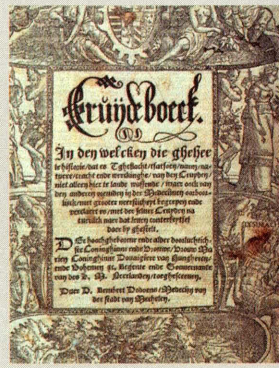 Cruijdeboeck.
In den welcken die gheheele
historie/dat es Tgheslacht/tfatsoen/naem/na-
tuere/cracht ende werckinghe/van den Cruyden/
niet alleen hier te lande wassende/maer oock van
den anderen vremden in der Medecijnen oorboor-
lijck/met grooter neersticheyt begrepen ende
verclaert es/met der seluer Cruyden na-
tuerlick naer dat leuen conterfeytsel
daer by ghestelt.
Der hoochgheborene ende alder doorluchtich-
ste Coninghinne ende Vrouwe/Vrouw Ma-
rien Coninghinne Douaigiere van Hungheren/
ende Bohemen &c. Regente ende Gouuernante
van des K. M. Neerlanden/toegheschreuen.
Duer D. Rembert Dodoens/Medecijn van
der stadt van Mechelen.